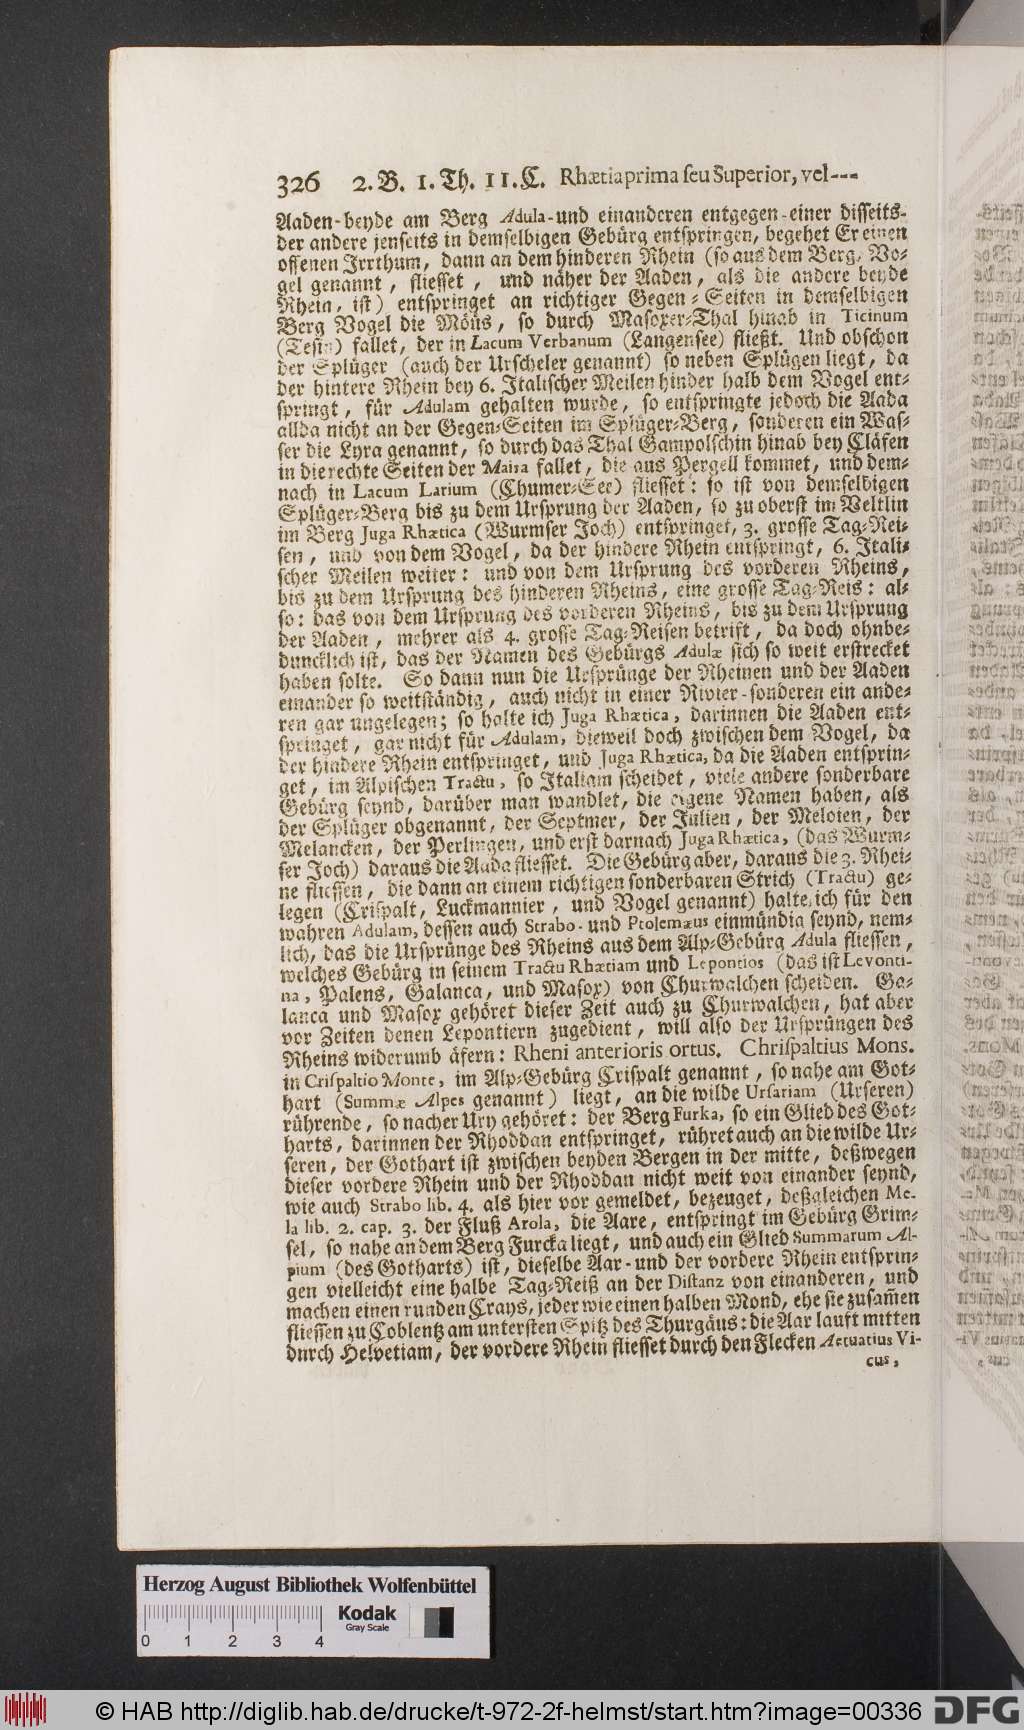 326 2. B. 1. Th. 11. C. Rhætia prima seu Superior, vel---
Aaden-beyde am Berg Adula-und einanderen entgegen-einer disseits-
der andere jenseits in demselbigen Gebürg entspringen, begehet Er einen
offenen Irrthum, dann an dem hinderen Rhein (so aus dem Berg, Vo-
gel genannt, fliesset, und näher der Aaden, als die andere beyde
Rhein, ist) entspringet an richtiger Gegen-Seiten in demselbigen
Berg Vogel die Möüs, so durch Masoxer-Thal hinab in Ticinum
(Tesin) fallet, der in Lacum Verbanum (Langensee) fließt. Und obschon
der Splüger (auch der Urscheler genannt) so neben Splügen liegt, da
der hintere Rhein bey 6. Italischer Meilen hinder halb dem Vogel ent-
springt, für Adulam gehalten wurde, so entspringte jedoch die Aada
allda nicht an der Gegen-Seiten im Splüger-Berg, sonderen ein Was-
ser die Lyra genannt, so durch das Thal Gampolschin hinab bey Cläfen
in die rechte Seiten der Maira fallet, die aus Pergell kommet, und dem-
nach in Lacum Larium (Chumer-See) fliesset: so ist von demselbigen
Splüger-Berg bis zu dem Ursprung der Aaden, so zu oberst im Veltlin
im Berg Juga Rhætica (Wurmser Joch) entspringet, 3. grosse Tag-Rei-
sen, und von dem Vogel, da der hindere Rhein entspringt, 6. Itali-
scher Meilen weiter: und von dem Ursprung des vorderen Rheins,
bis zu dem Ursprung des hinderen Rheins, eine grosse Tag-Reis: al-
so: das von dem Ursprung des vorderen Rheins, bis zu dem Ursprung
der Aaden, mehrer als 4. grosse Tag-Reisen betrift, da doch ohnbe-
duncklich ist, das der Namen des Gebürgs Adulæ sich so weit erstrecket
haben solte. So dann nun die Ursprünge der Rheinen und der Aaden
einander so weitständig, auch nicht in einer Rivier-sonderen ein ande-
ren gar ungelegen; so halte ich Juga Rhætica, darinnen die Aaden ent-
springet, gar nicht für Adulam, dieweil doch zwischen dem Vogel, da
der hindere Rhein entspringet, und Juga Rhætica, da die Aaden entsprin-
get, im Alpischen Tractu, so Italiam scheidet, viele andere sonderbare
Gebürg seynd, darüber man wandlet, die eigene Namen haben, als
der Splüger obgenannt, der Septmer, der Julien, der Meloien, der
Melancken, der Perlingen, und erst darnach Juga Rhætica, (das Wurm-
ser Joch) daraus die Aada fliesset. Die Gebürg aber, daraus die 3. Rhei-
ne fliessen, die dann an einem richtigen sonderbaren Strich (Tractu) ge-
legen (Crispalt, Luckmannier, und Vogel genannt) halte ich für den
wahren Adulam, dessen auch Strabo-und Ptolemæus einmündig seynd, nem-
lich, das die Ursprünge des Rheins aus dem Alp-Gebürg Adula fliessen,
welches Gebürg in seinem Tractu Rhætiam und Lepontios (das ist Levonti-
na, Palens, Galanca, und Masox) von Churwalchen scheiden. Ga-
lanca und Masox gehöret dieser Zeit auch zu Churwalchen, hat aber
vor Zeiten denen Lepontiern zugedient, will also der Ursprüngen des
Rheins widerumb äfern: Rheni anterioris ortus. Chrispaltius Mons.
in Crispaltio Monte, im Alp-Gebürg Crispalt genannt, so nahe am Got-
hart (Summæ Alpes genannt) liegt, an die wilde Ursariam (Urseren)
rührende, so nacher Ury gehöret: der Berg Furka, so ein Glied des Got-
harts, darinnen der Rhoddan entspringet, rühret auch an die wilde Ur-
seren, der Gothart ist zwischen beyden Bergen in der mitte, deßwegen
dieser vordere Rhein und der Rhoddan nicht weit von einander seynd,
wie auch Strabo lib. 4. als hier vor gemeldet, bezeuget, deßgleichen Me-
la lib. 2. cap. 3. der Fluß Arola, die Aare, entspringt im Gebürg Grim-
sel, so nahe an dem Berg Furcka liegt, und auch ein Glied Summarum Al-
pium (des Gotharts) ist, dieselbe Aar-und der vordere Rhein entsprin-
gen vielleicht eine halbe Tag-Reiß an der Distanz von einanderen, und
machen einen runden Crays, jeder wie einen halben Mond, ehe sie zusam̃en
fliessen zu Coblentz am untersten Spitz des Thurgäus: die Aar lauft mitten
durch Helvetiam, der vordere Rhein fliesset durch den Flecken Aetuatius Vi-
cus,
Herzog August Bibliothek Wolfenbüttel
Kodak
Gray Scale
0 1 2 3 4
© HAB http://diglib.hab.de/drucke/t-972-2f-helmst/start.htm?image=00336
DFG